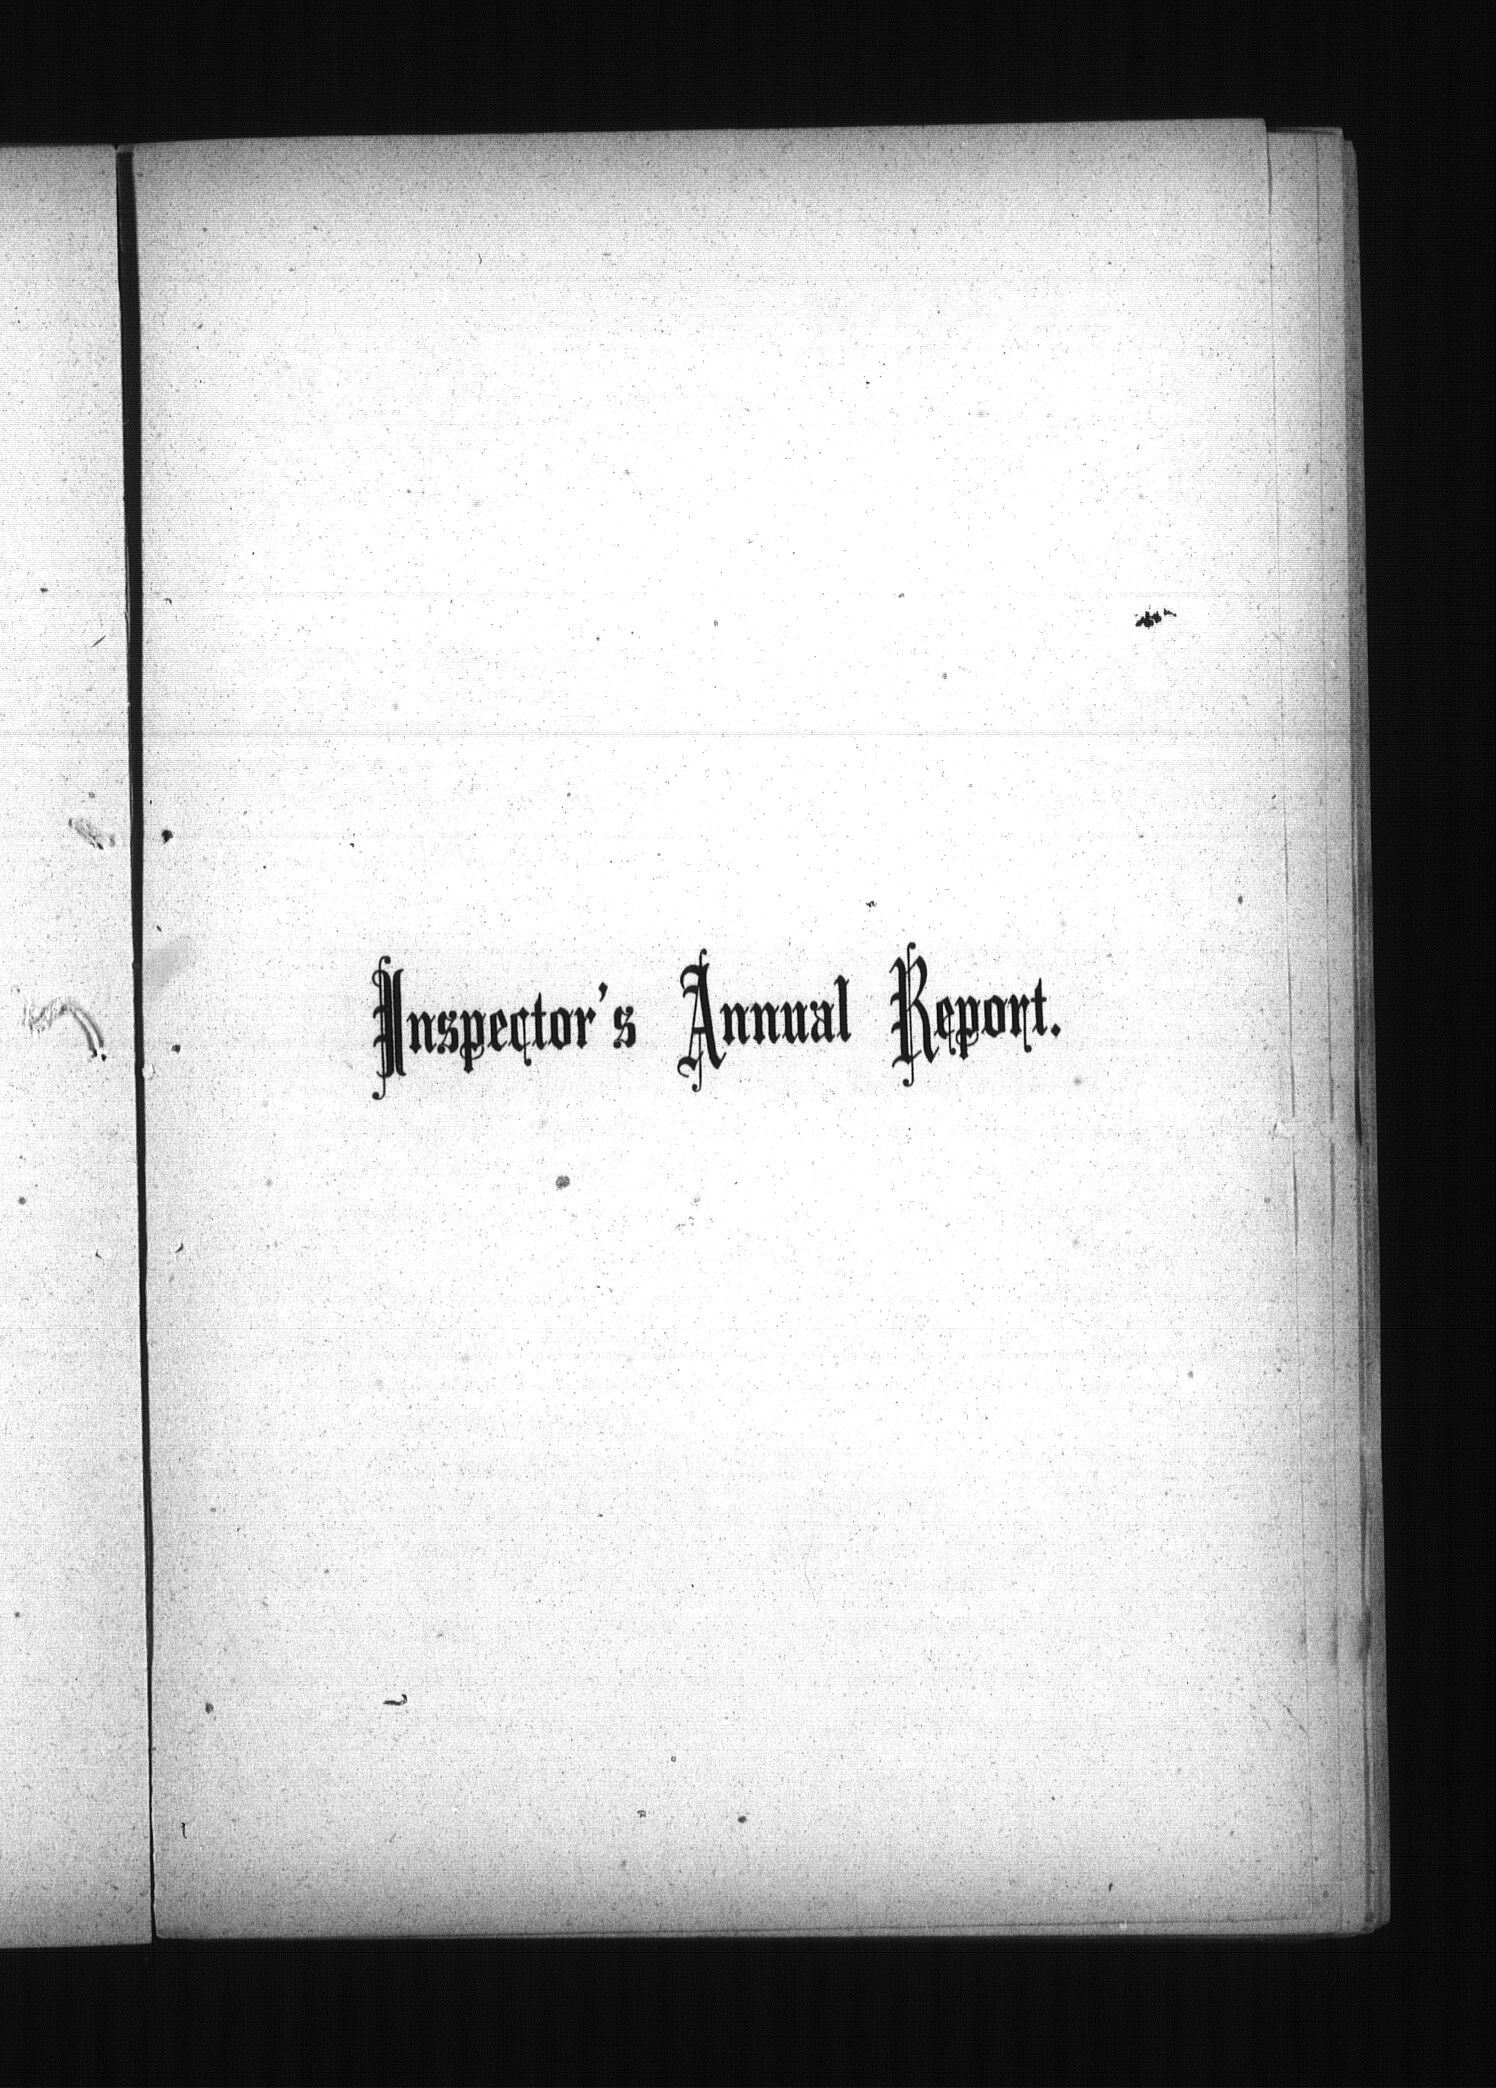 Inspector's Annual Report.